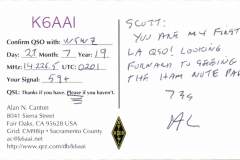 K6AAI
Confirm QSO with: W5WZ
Day: 27 Month: 7 Year: 19
MHz: 14226.5 UTC: 0201
Your Signal: 59+
QSL: Thanks if you have. Please if you haven't.
Alan N. Cantor
8041 Sierra Street
Fair Oaks, CA 95628 USA
Grid: CM98ip • Sacramento County
ac@k6aai.net
http://www.qrz.com/db/k6aai
SCOTT:
YOU ARE MY FIRST
LA QSO! LOOKING
FORWARD TO SEEING
THE HAM NOTE PAD
73s
AL